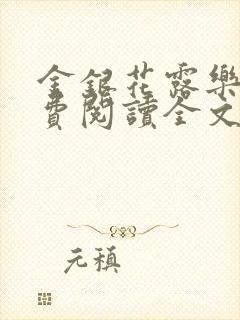 金銀花露樂
費閱讀全文
元稹